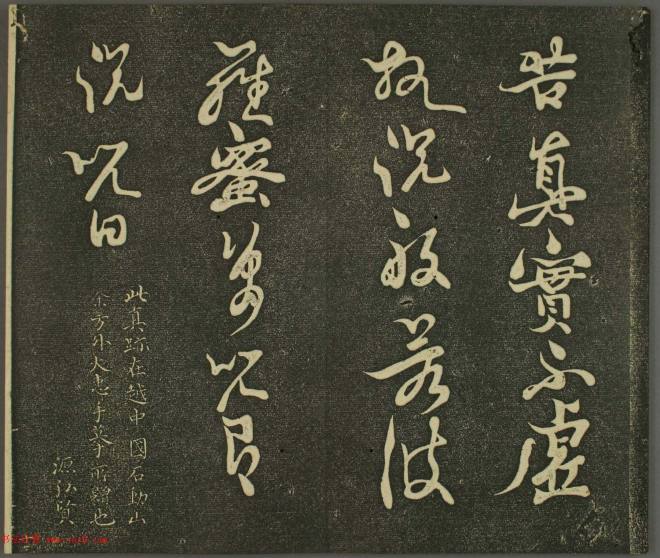 苦真實不虛
故說般若波
羅蜜多呪即
說呪曰
此真跡在越中國石動山
余方外大惠手摹所贈也
源弘賢